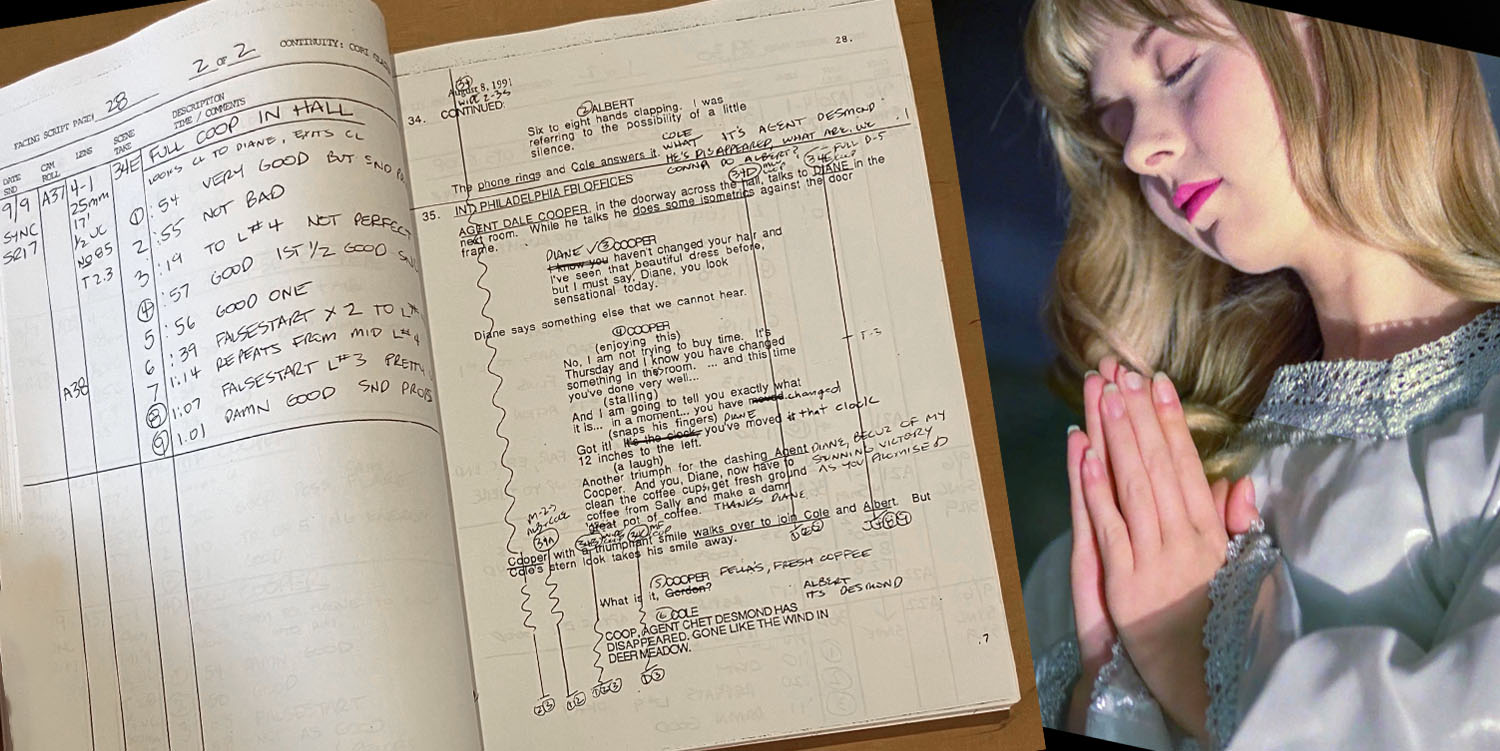 2 OF 2
CONTINUITY: CORI
FACING SCRIPT PAGE: 28
DATE SND
CAM ROLL
LENS
SCENE TAKE
DESCRIPTION TIME / COMMENTS
9/9 A37 4-1 34E FULL COOP IN HALL
SYNC 25mm LOOKS CL TO DIANE, EXITS CL
SR17 17' ① :54 VERY GOOD BUT SND
1/2 UC 2 :55 NOT BAD
NO 85 3 :19 TO L#4 NOT PERFECT
T2.3 ④ :57 GOOD 1ST 1/2 GOOD
5 :56 GOOD ONE
6 :39 FALSESTART X 2 TO L#
7 1:14 REPEATS FROM MID L#4
A38 ⑧ 1:07 FALSESTART L#3 PRETTY
⑨ 1:01 DAMN GOOD SND PROBS
28.
August 8, 1991
34. CONTINUED:
② ALBERT
Six to eight hands clapping. I was
referring to the possibility of a little
silence.
COLE
WHAT IT'S AGENT DESMOND.
The phone rings and Cole answers it. HE'S DISAPPEARED, WHAT ARE WE
GONNA DO ALBERT?
35. INT. PHILADELPHIA FBI OFFICES
34D
34E FULL D-5
AGENT DALE COOPER, in the doorway across the hall, talks to DIANE in the
next room. While he talks he does some isometrics against the door
frame.
DIANE ③ COOPER
I know you haven't changed your hair and
I've seen that beautiful dress before,
but I must say, Diane, you look
sensational today.
Diane says something else that we cannot hear.
④ COOPER
(enjoying this)
No, I am not trying to buy time. It's
Thursday and I know you have changed
something in this room. ... and this time
you've done very well...
(stalling)
And I am going to tell you exactly what
it is... in a moment... you have moved changed
(snaps his fingers) DIANE
Got it! It's the clock. you've moved that clock
12 inches to the left.
(a laugh)
Another triumph for the dashing Agent DIANE, BECUZ OF MY
Cooper. And you, Diane, now have to STUNNING VICTORY
clean the coffee cups, get fresh ground AS YOU PROMISED
coffee from Sally and make a damn
great pot of coffee. THANKS DIANE.
T-3
34A
Cooper with a triumphant smile walks over to join Cole and Albert. But
Cole's stern look takes his smile away.
⑤ COOPER FELLA'S, FRESH COFFEE
What is it, Gordon? ALBERT
IT'S DESMOND
⑥ COLE
COOP, AGENT CHET DESMOND HAS
DISAPPEARED. GONE LIKE THE WIND IN
DEER MEADOW.
.7